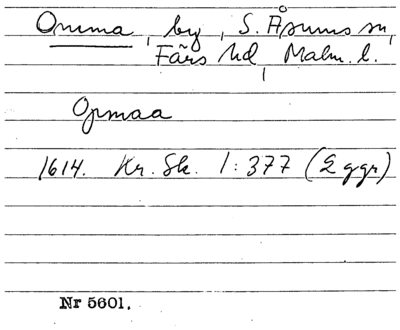 Omma, by, S. Åsums sn,
Färs hd, Malm. l.
Opmaa
1614. Kr. Sk. 1:377 (2 ggr)
Nr 5601.